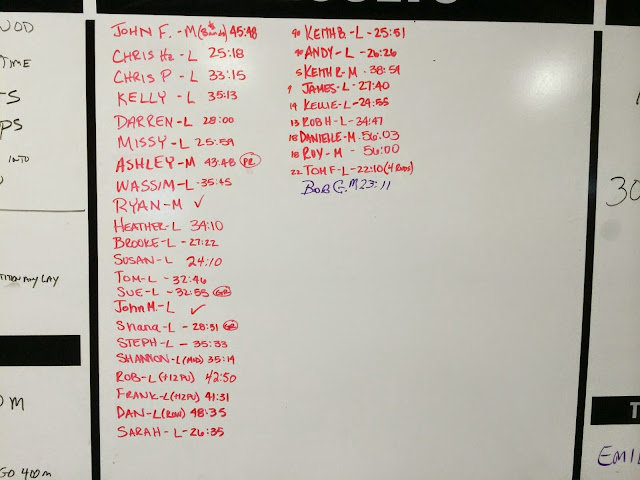 WOD
TIME
INTO
GO 400m
JOHN F. - M 45:48
CHRIS Hz - L 25:18
CHRIS P - L 33:15
KELLY - L 35:13
DARREN - L 28:00
MISSY - L 25:59
ASHLEY - M 43:48 PR
WASSIM - L - 35:45
RYAN - M ✓
HEATHER - L 34:10
BROOKE - L - 27:22
SUSAN - L 24:10
TOM - L - 32:46
SUE - L - 32:55
John M. - L ✓
Shana - L - 28:31
STEPH - L - 35:33
SHANNON - L (MOD) 35:14
ROB - L (+12PU) 42:50
FRANK - L (+12PU) 41:31
DAN - L (ROW) 48:35
SARAH - L - 26:35
KEITH B. - L - 25:51
ANDY - L - 26:26
5 KEITH R - M - 38:59
JAMES - L - 27:40
14 KELLIE - L - 24:55
13 ROB H - L - 34:47
18 DANIELLE - M. 56:03
18 ROY - M - 56:00
22 TOM F - L - 22:10 (4 RNDS)
BOB G. M 23:11
30
EMIL